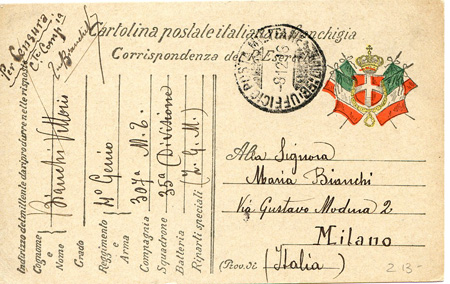 Per Censura
Cte Compia
Cartolina postale italiana in franchigia
Corrispondenza del R. Esercito
UFFICIO POSTA MILITARE
Indirizzo del mittente da riprodurre nelle risposte
Cognome e Nome Bianchi Vittorio
Grado
Reggimento e Arma 4° Genio
Compagnia 307a M.T.
Squadrone 35a Divisione
Batteria
Riparti speciali (Z.G.M.)
Alla Signora
Maria Bianchi
Via Gustavo Modena 2
Milano
(Prov. di (Italia)
213-